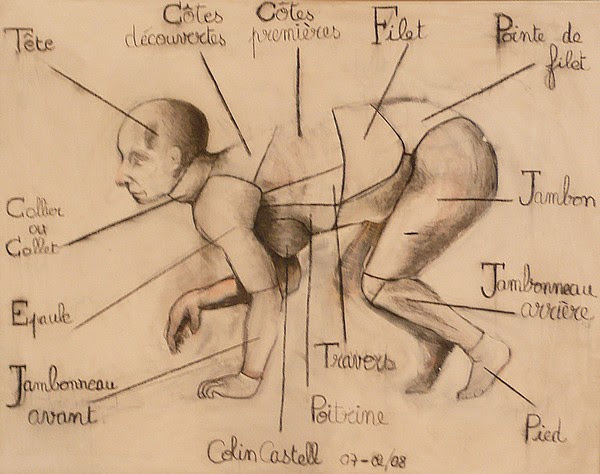 Tête
Côtes
découvertes
Côtes
premières
Filet
Pointe de
filet
Collier
ou
Collet
Jambon
Epaule
Jambonneau
arrière
Jambonneau
avant
Travers
Poitrine
Pied
Colin Castell 07-02/08